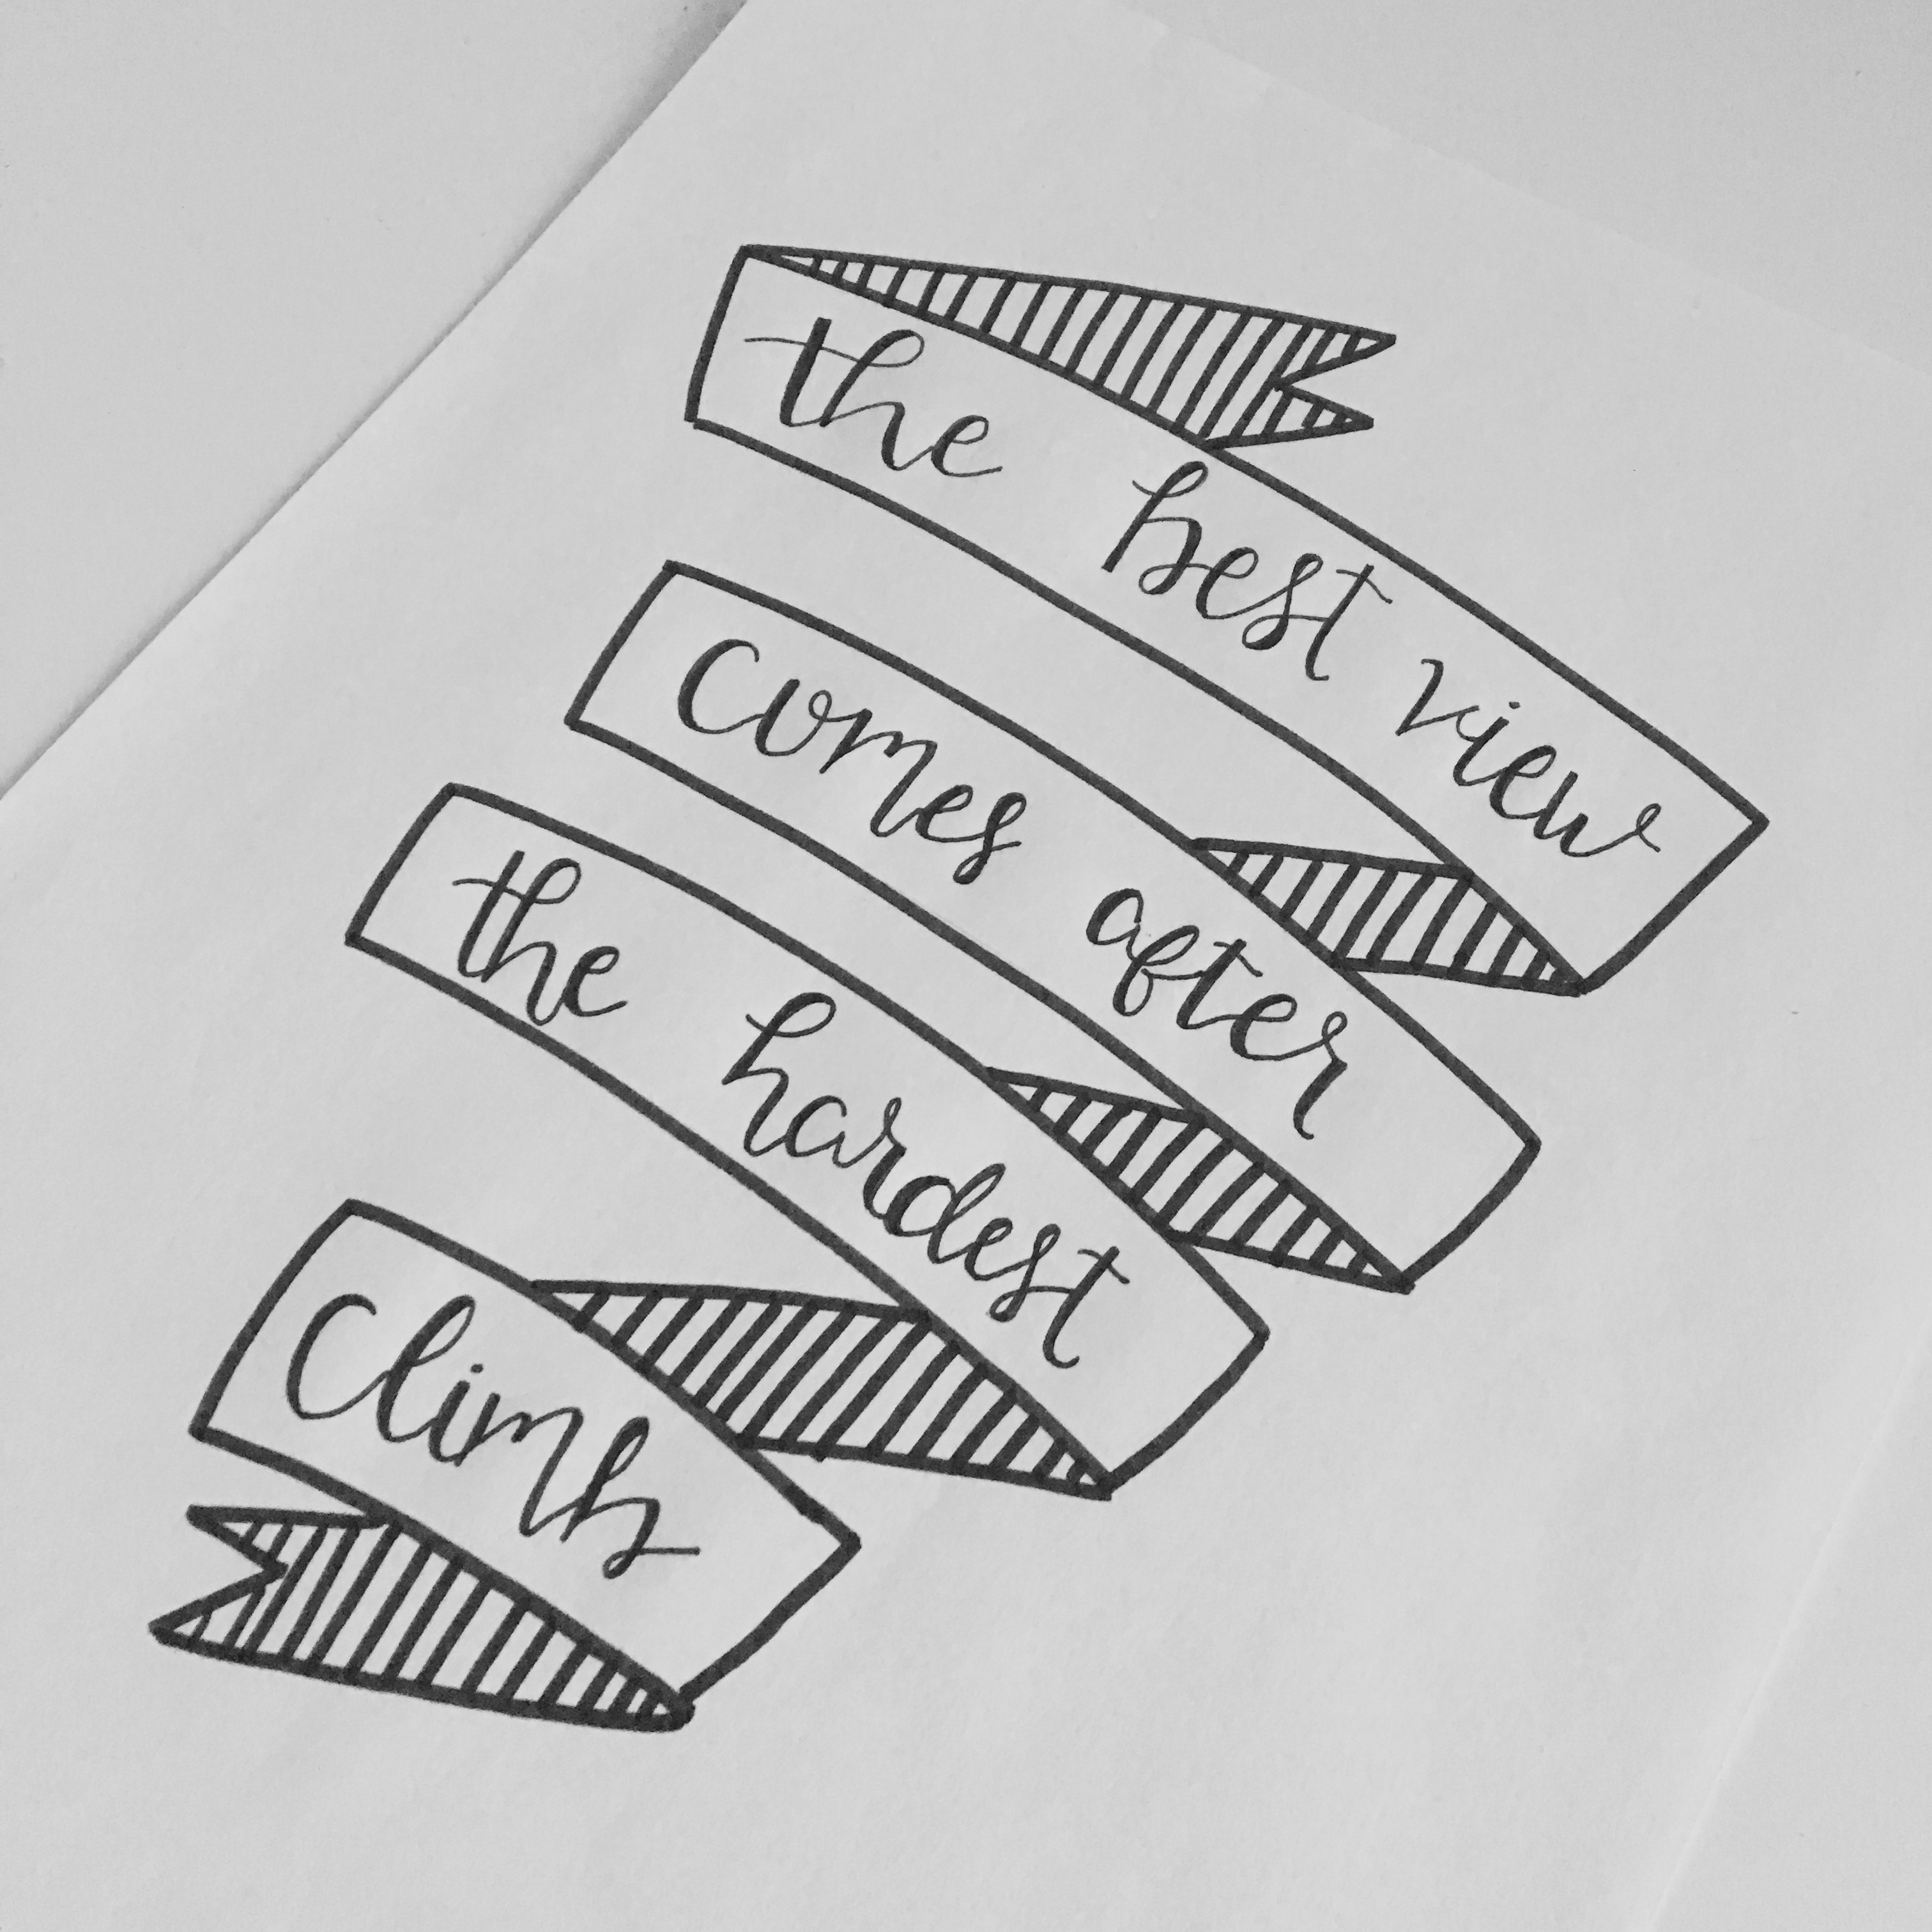 the best view
comes after
the hardest
Climb